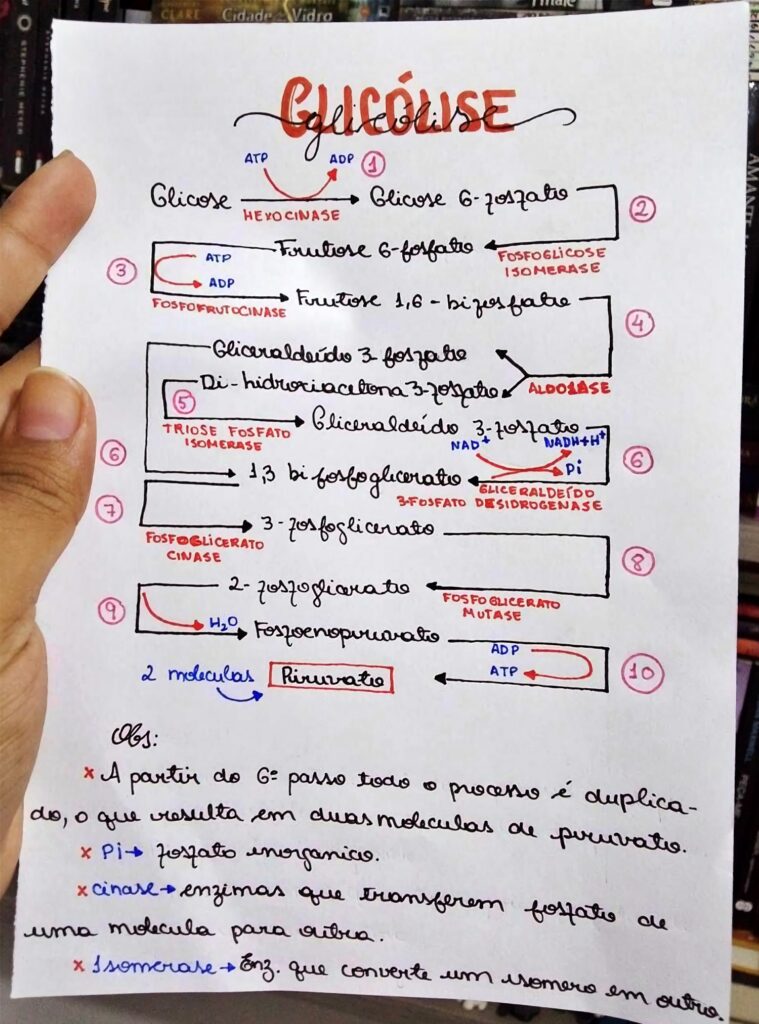 CLARE Cidade Vidro
STEPHENIE MEYER
AMANTE
GLICÓLISE
glicólise
ATP ADP 1
Glicose Glicose 6-fosfato
HEXOCINASE
2
Frutose 6-fosfato
FOSFOGLICOSE
ISOMERASE
3
ATP
ADP
FOSFOFRUTOCINASE
Frutose 1,6-bifosfato
4
Gliceraldeído 3-fosfato
Di-hidroxiacetona 3-fosfato
ALDOLASE
5
TRIOSE FOSFATO
ISOMERASE
Gliceraldeído 3-fosfato
NAD+ NADH+H+
Pi
6
6
1,3 bifosfoglicerato
GLICERALDEÍDO
3-FOSFATO DESIDROGENASE
7
FOSFOGLICERATO
CINASE
3-fosfoglicerato
8
2-fosfoglicerato
FOSFOGLICERATO
MUTASE
9
H2O
Fosfoenopiruvato
ADP
ATP
10
2 moleculas Piruvato
Obs:
x A partir do 6º passo todo o processo é duplica-
do, o que resulta em duas moleculas de piruvato.
x Pi→ fosfato inorganico.
x cinase→ enzimas que transferem fosfato de
uma molecula para outra.
x Isomerase→ Enz. que converte um isomero em outro.